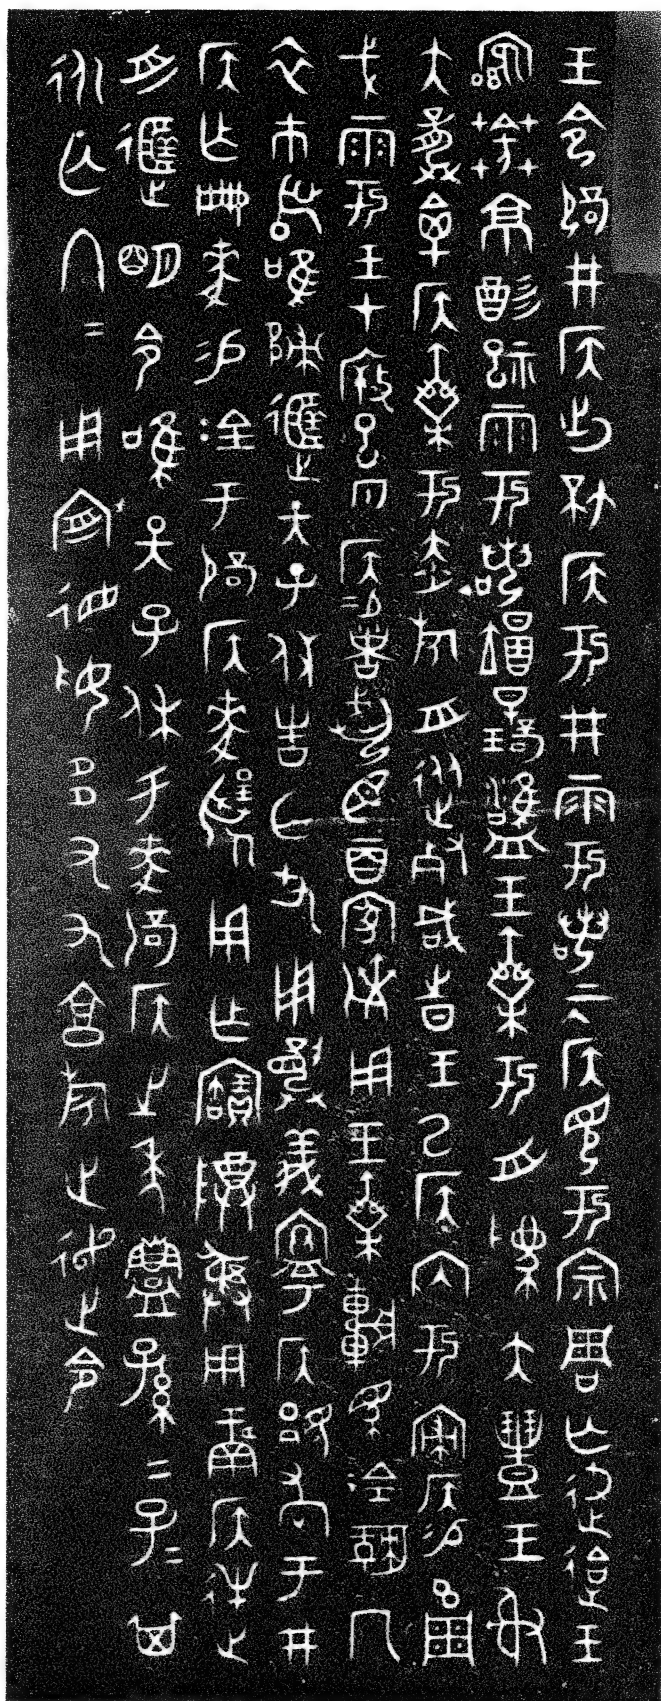 王令辟井侯出坏侯于井雩若二月侯見于宗周亡尤迨王
𩛥莽京酌祀雩若翌日在璧雍王乘于舟為大豐王射
大龏禽侯乘于赤旂舟從死咸之日王以侯內于寢侯易玄周
戈雩王在廠巳夕侯易者夙臣二百家劑用王乘車馬金勒冂
衣巿舄唯歸遅天子休告亡尤用龏義寧侯顯考于井
侯乍冊麥易金于辟侯麥揚用乍寶尊彝用𩰫侯逆
舟遅明令唯天子休于麥辟侯之年鑄孫=子=其
永亡冬=用造德妥多友享旋走令